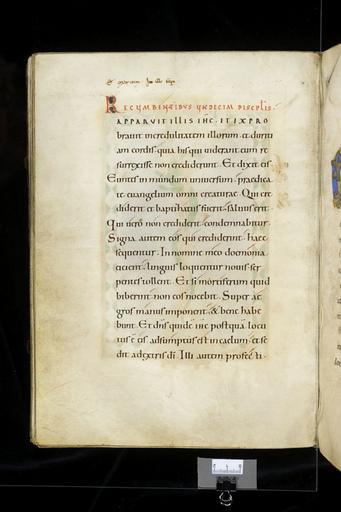 RECUMBENTIBUS UNDECIM DISCIPLIS
APPARUIT ILLIS IHC. ET EXPRO
brauit incredulitatem illorum. et duriti
am cordis. quia his qui uiderant eum re
surrexisse non crediderunt. Et dixit eis.
Euntes in mundum uniuersum. praedica
te euangelium omni creaturae. Qui cre
diderit et baptizatus fuerit. saluus erit.
Qui uero non crediderit. condemnabitur.
Signa autem eos qui crediderint. haec
sequentur. In nomine meo daemonia
eicient. linguis loquentur nouis. ser
pentes tollent. Et si mortiferum quid
biberint. non eos nocebit. Super ae
gros manus imponent. & bene habe
bunt. Et dns quidē ihc postquā locu
tus ē eis. adsumptus est in caelum. et se
dit ad dextris dī. Illi autem profecti.